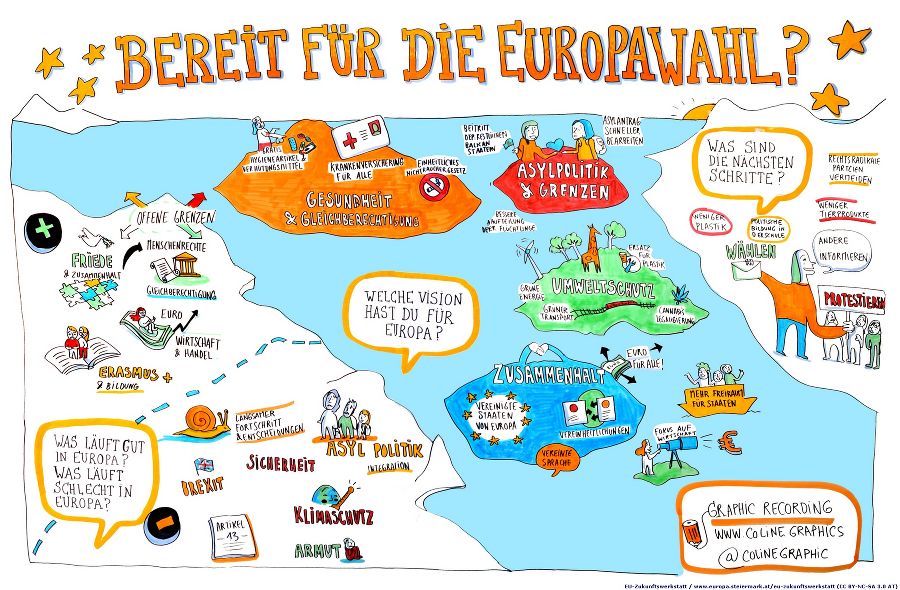 BEREIT FÜR DIE EUROPAWAHL?
OFFENE GRENZEN
FRIEDE
& ZUSAMMENHALT
MENSCHENRECHTE
GLEICHBERECHTIGUNG
EURO
WIRTSCHAFT
& HANDEL
ERASMUS +
& BILDUNG
WAS LÄUFT GUT
IN EUROPA?
WAS LÄUFT
SCHLECHT IN
EUROPA?
LANGSAMER
FORTSCHRITT
& ENTSCHEIDUNGEN
ASYL POLITIK
INTEGRATION
BREXIT
SICHERHEIT
KLIMASCHUTZ
ARTIKEL
- 13 -
ARMUT
WELCHE VISION
HAST DU FÜR
EUROPA?
GRATIS
HYGIENEARTIKEL &
VERHÜTUNGSMITTEL
KRANKENVERSICHERUNG
FÜR ALLE
EINHEITLICHES
NICHTRAUCHERGESETZ
GESUNDHEIT
& GLEICHBERECHTIGUNG
BEITRITT
DER RESTLICHEN
BALKAN
STAATEN
ASYLANTRAG
SCHNELLER
BEARBEITEN
ASYLPOLITIK
& GRENZEN
BESSERE
AUFTEILUNG
DER FLÜCHTLINGE
ERSATZ
FÜR
PLASTIK
GRÜNE
ENERGIE
UMWELTSCHUTZ
GRÜNER
TRANSPORT
CANNABIS
LEGALISIERUNG
ZUSAMMENHALT
EURO
FÜR ALLE!
VEREINIGTE
STAATEN
VON EUROPA
VEREINHEITLICHUNGEN
VEREINTE
SPRACHE
MEHR FREIRAUM
FÜR STAATEN
FOKUS AUF
WIRTSCHAFT
€
WAS SIND
DIE NÄCHSTEN
SCHRITTE?
RECHTSRADIKALE
PARTEIEN
VERMEIDEN
WENIGER
TIERPRODUKTE
WENIGER
PLASTIK
POLITISCHE
BILDUNG IN
DER SCHULE
WÄHLEN
ANDERE
INFORMIEREN
PROTESTIEREN
GRAPHIC RECORDING
WWW.COLINEGRAPHICS
@COLINEGRAPHIC
EU-Zukunftswerkstatt / www.europa.steiermark.at/eu-zukunftswerkstatt (CC BY-NC-SA 3.0 AT)